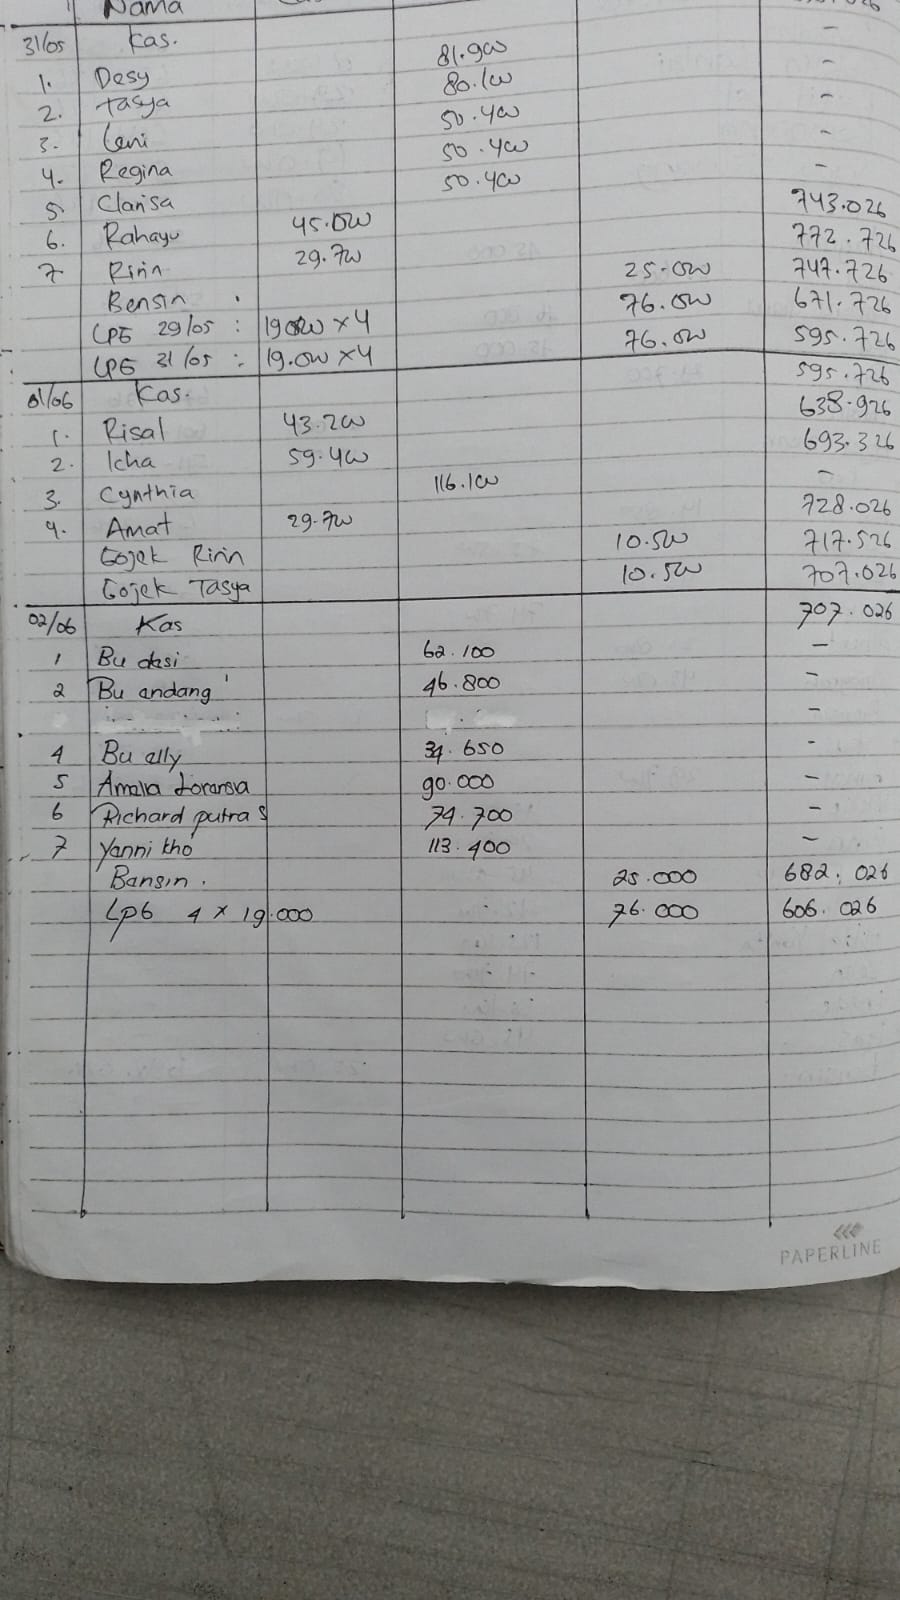 Nama
31/05 Kas. -
1. Desy 81.900 -
2. Tasya 80.100 -
3. Leni 50.400 -
4. Regina 50.400 -
5. Clarisa 50.400
6. Rahayu 45.000 743.026
7 Ririn 29.700 772.726
Bensin 25.000 747.726
LPG 29/05 : 19000 x 4 76.000 671.726
LPG 31/05 : 19.000 x 4 76.000 595.726
01/06 Kas. 595.726
1. Risal 43.200 638.926
2. Icha 59.400 693.326
3. Cynthia 116.100 -
4. Amat 29.700 728.026
Gojek Ririn 10.500 717.526
Gojek Tasya 10.500 707.026
02/06 Kas 707.026
1 Bu dasi 62.100 -
2 Bu andang 46.800 -
-
4 Bu ally 34.650 -
5 Amalia Loransia 90.000 -
6 Richard putra S 74.700 -
7 Yanni kho 113.400 -
Bansin. 25.000 682.026
Lp6 4 x 19.000 76.000 606.026
PAPERLINE